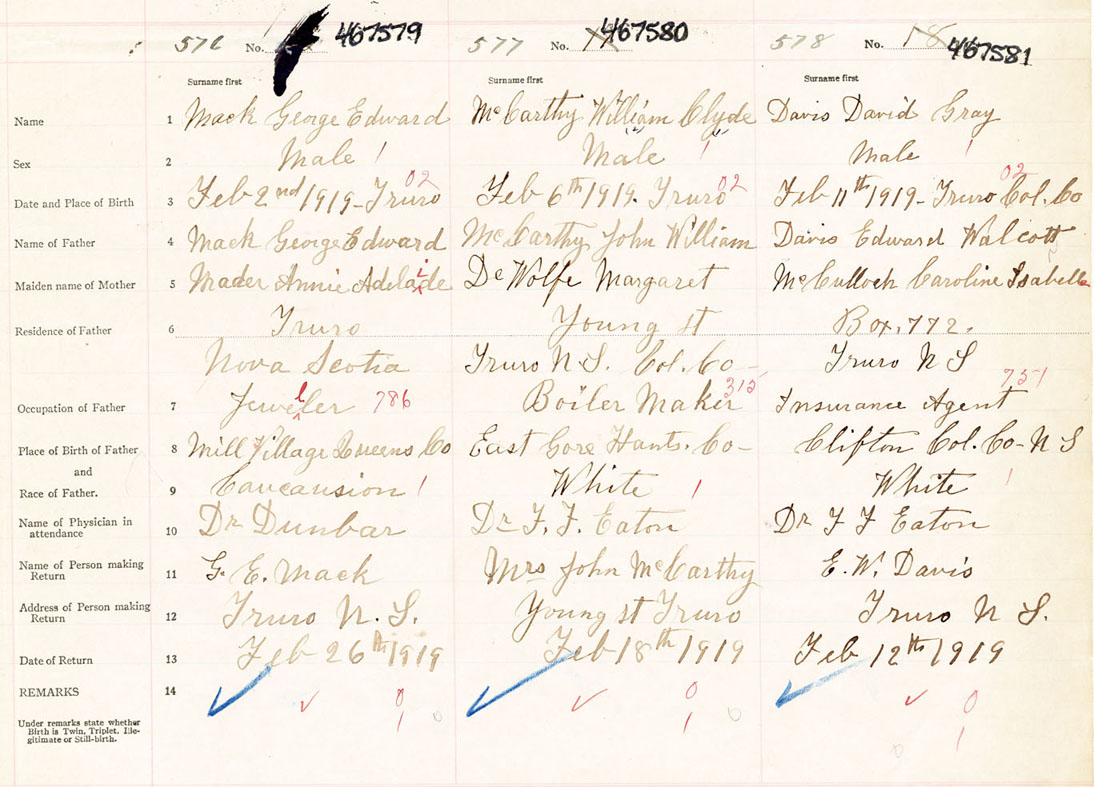 576 No. 467579 577 No. 17 467580 578 No. 18 467581
Surname first Surname first Surname first
Name 1 Mack George Edward McCarthy William Clyde Davis David Gray
Sex 2 Male 1 Male 1 Male 1
02 02 02
Date and Place of Birth 3 Feb 2nd 1919 - Truro Feb 6th 1919. Truro Feb 11th 1919 - Truro Col. Co
Name of Father 4 Mack George Edward McCarthy John William Davis Edward Walcott
Maiden name of Mother 5 Mader Annie Adelaide De Wolfe Margaret McCulloch Caroline Isabelle
Residence of Father 6 Truro Young st Box. 772.
Nova Scotia Truro N.S. Col. Co - Truro N S
Occupation of Father 7 Jeweller 786 Boiler Maker 315 Insurance Agent 751
Place of Birth of Father 8 Mill Village Queens Co East Gore Hants. Co - Clifton Col. Co - N S
and
Race of Father. 9 Caucausion 1 White 1 White 1
Name of Physician in attendance 10 Dr Dunbar Dr F. F. Eaton Dr F F Eaton
Name of Person making Return 11 G. E. Mack Mrs John McCarthy E. W. Davis
Address of Person making Return 12 Truro N. S. Young st Truro Truro N S.
Date of Return 13 Feb 26th 1919 Feb 18th 1919 Feb 12th 1919
REMARKS 14 0 0 0
1 0 1 0 1
Under remarks state whether
Birth is Twin, Triplet, Ille-
gitimate or Still-birth.
0